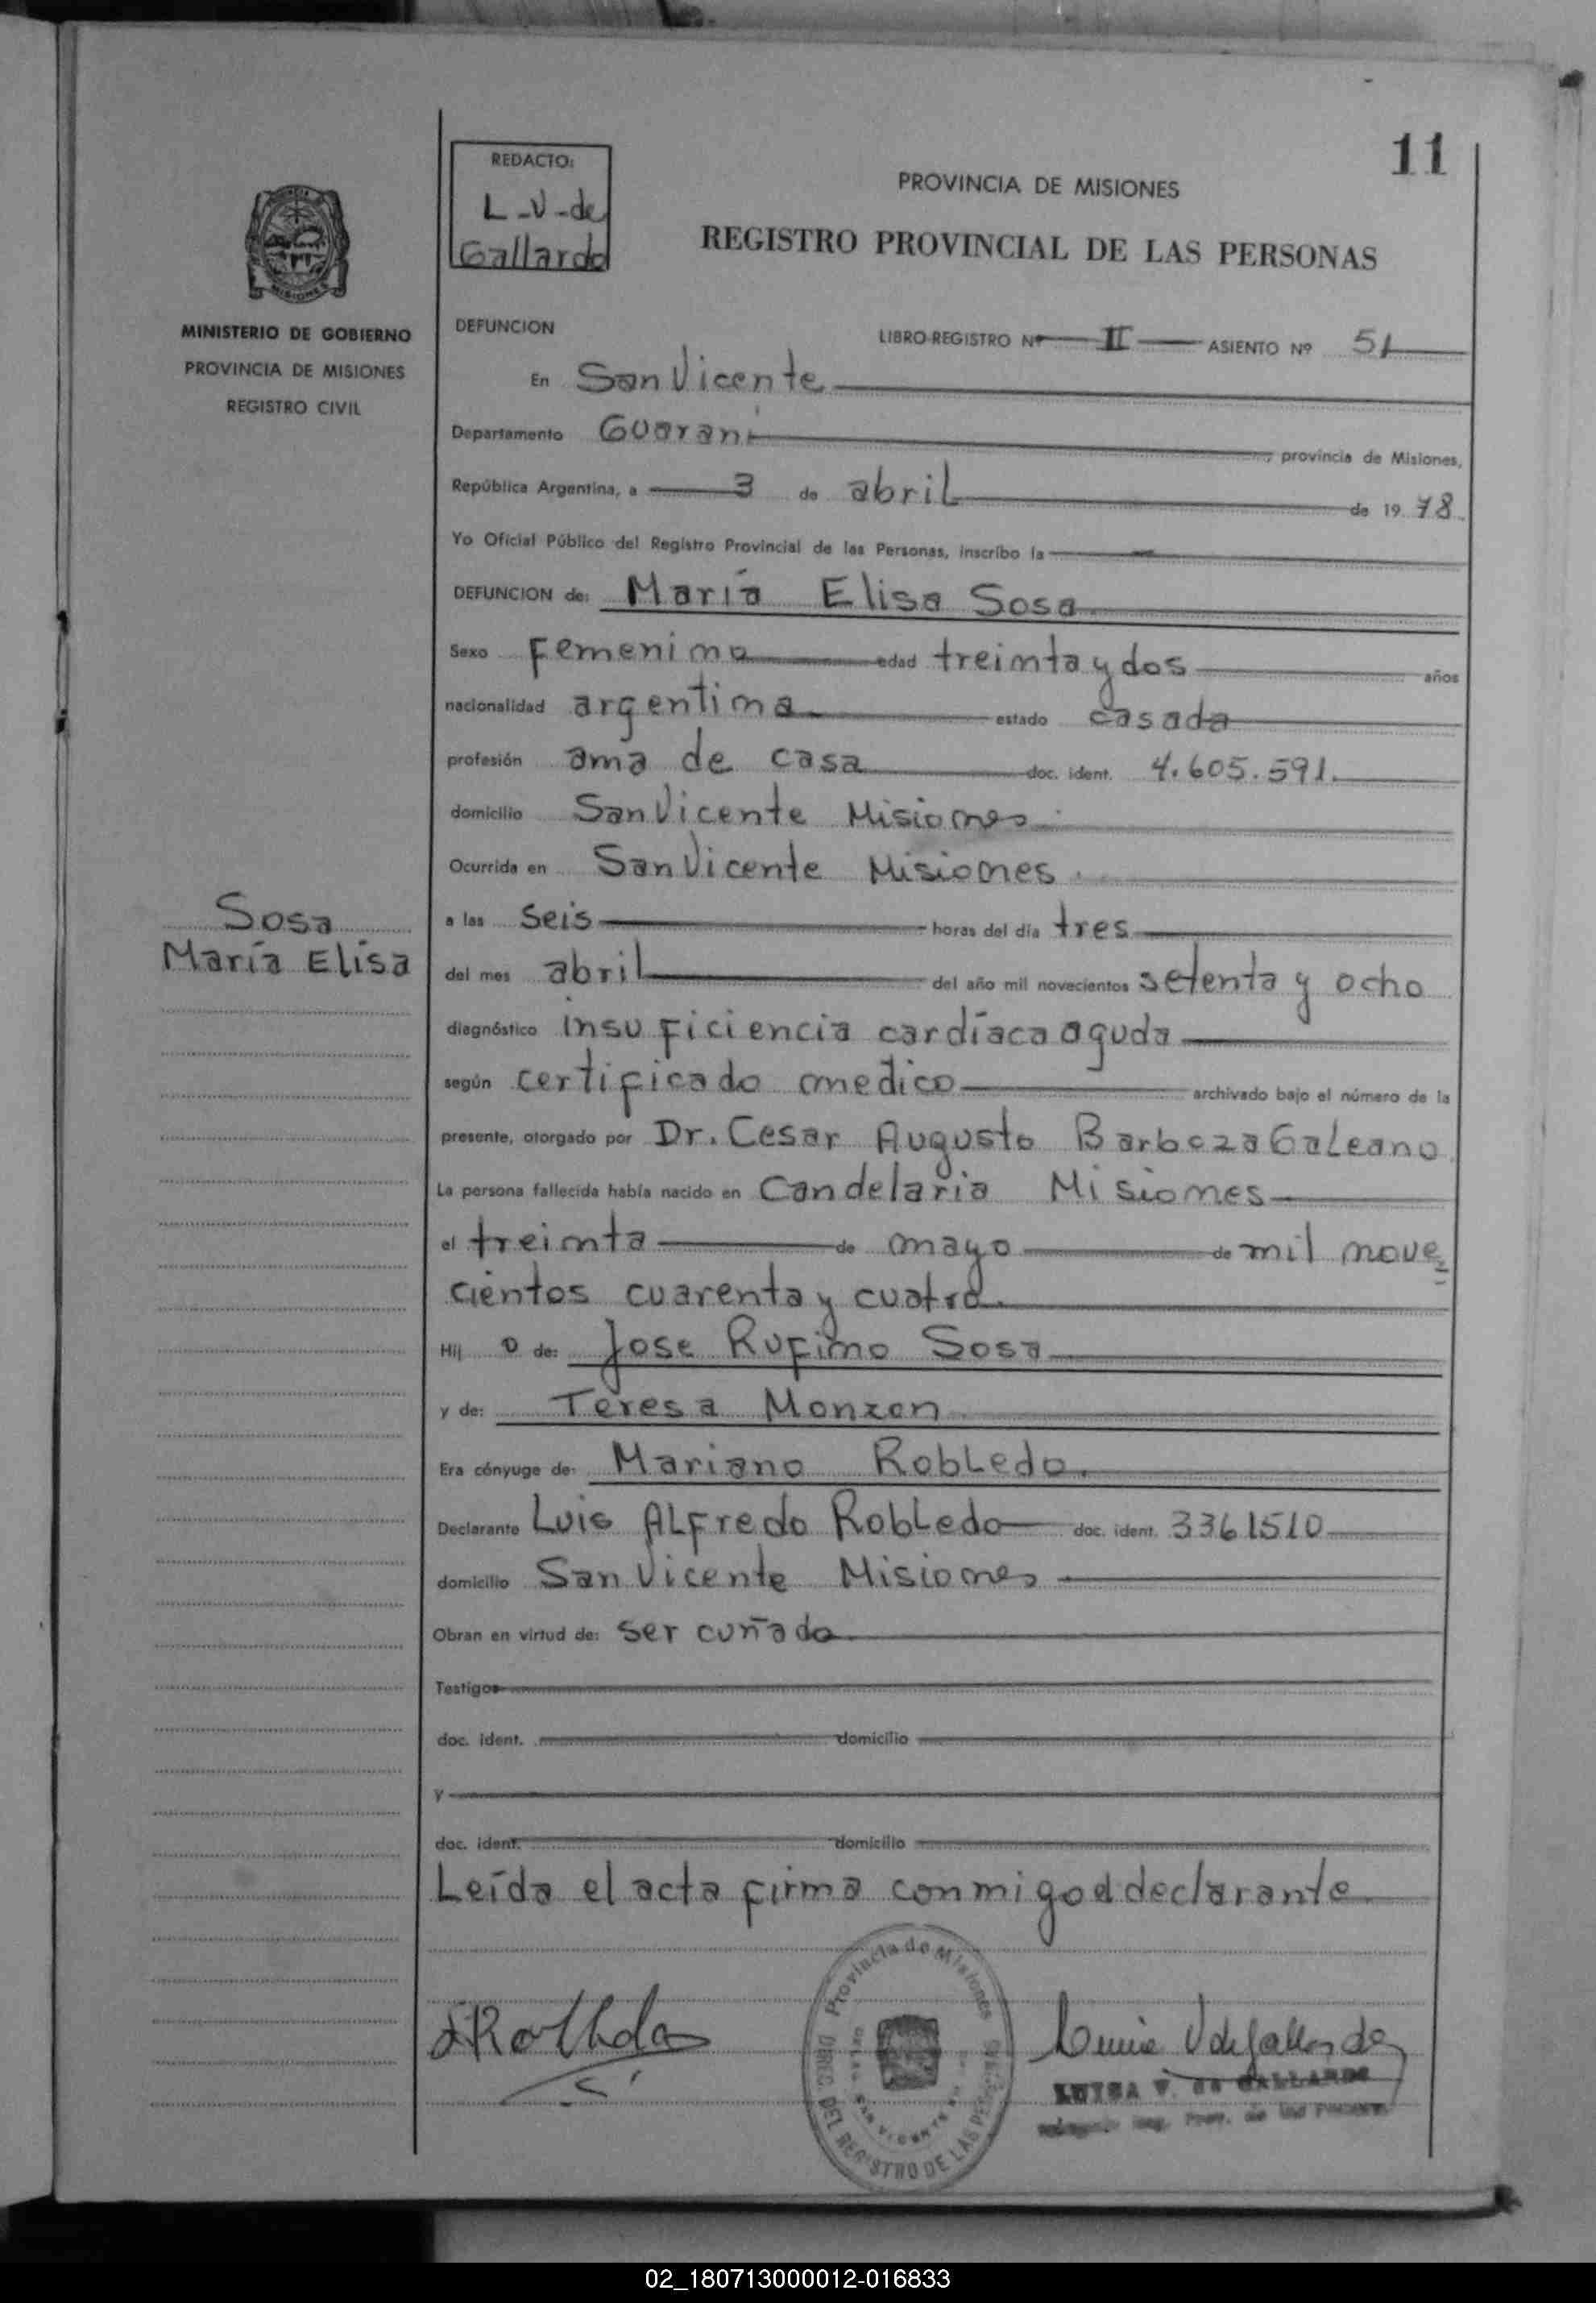 11
REDACTO:
L-V-de
Gallardo
PROVINCIA DE MISIONES
REGISTRO PROVINCIAL DE LAS PERSONAS
MISIONES
MINISTERIO DE GOBIERNO
PROVINCIA DE MISIONES
REGISTRO CIVIL
Sosa
María Elisa
DEFUNCION LIBRO-REGISTRO Nº II ASIENTO Nº 51
En San Vicente
Departamento Guarani, provincia de Misiones,
República Argentina, a 3 de abril de 19 78
Yo Oficial Público del Registro Provincial de las Personas, inscribo la
DEFUNCION de: María Elisa Sosa
Sexo Femenino edad treinta y dos años
nacionalidad argentina estado casada
profesión ama de casa doc. ident. 4.605.591.
domicilio San Vicente Misiones
Ocurrida en San Vicente Misiones
a las seis horas del día tres
del mes abril del año mil novecientos setenta y ocho
diagnóstico insuficiencia cardíaca aguda
según certificado medico archivado bajo el número de la
presente, otorgado por Dr. Cesar Augusto Barboza Galeano
La persona fallecida había nacido en Candelaria Misiones
el treinta de mayo de mil nove=
cientos cuarenta y cuatro.
Hij o de: Jose Rufino Sosa
y de: Teresa Monzon
Era cónyuge de: Mariano Robledo.
Declarante Luis Alfredo Robledo doc. ident. 3361510
domicilio San Vicente Misiones
Obran en virtud de: ser cuñado
Testigos
doc. ident. domicilio
y
doc. ident. domicilio
Leída el acta firma conmigo el declarante
Provincia de Misiones
DIREC. DEL REGISTRO DE LAS PERSONAS
SAN VICENTE
LUISA V. de GALLARDO
Reg. Prov. de las
02_180713000012-016833